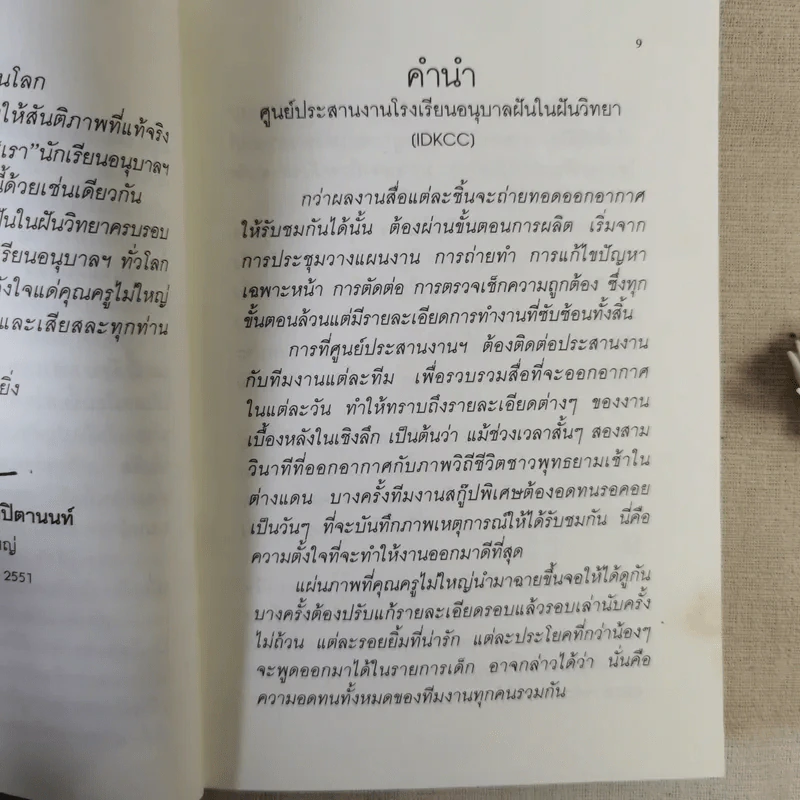 นโลก
ให้สันติภาพที่แท้จริง
เรา"นักเรียนอนุบาลฯ
นี้ด้วยเช่นเดียวกัน
ฝันในฝันวิทยาครบรอบ
เรียนอนุบาลฯ ทั่วโลก
ังใจแด่คุณครูไม่ใหญ่
และเสียสละทุกท่าน
ยิ่ง
ปิตานนท์
2551
9
คำนำ
ศูนย์ประสานงานโรงเรียนอนุบาลฝันในฝันวิทยา
(IDKCC)
กว่าผลงานสื่อแต่ละชิ้นจะถ่ายทอดออกอากาศ
ให้รับชมกันได้นั้น ต้องผ่านขั้นตอนการผลิต เริ่มจาก
การประชุมวางแผนงาน การถ่ายทำ การแก้ไขปัญหา
เฉพาะหน้า การตัดต่อ การตรวจเช็กความถูกต้อง ซึ่งทุก
ขั้นตอนล้วนแต่มีรายละเอียดการทำงานที่ซับซ้อนทั้งสิ้น
การที่ศูนย์ประสานงานฯ ต้องติดต่อประสานงาน
กับทีมงานแต่ละทีม เพื่อรวบรวมสื่อที่จะออกอากาศ
ในแต่ละวัน ทำให้ทราบถึงรายละเอียดต่างๆ ของงาน
เบื้องหลังในเชิงลึก เป็นต้นว่า แม้ช่วงเวลาสั้นๆ สองสาม
วินาทีที่ออกอากาศกับภาพวิถีชีวิตชาวพุทธยามเช้าใน
ต่างแดน บางครั้งทีมงานสกู๊ปพิเศษต้องอดทนรอคอย
เป็นวันๆ ที่จะบันทึกภาพเหตุการณ์ให้ได้รับชมกัน นี่คือ
ความตั้งใจที่จะทำให้งานออกมาดีที่สุด
แผ่นภาพที่คุณครูไม่ใหญ่นำมาฉายขึ้นจอให้ได้ดูกัน
บางครั้งต้องปรับแก้รายละเอียดรอบแล้วรอบเล่านับครั้ง
ไม่ถ้วน แต่ละรอยยิ้มที่น่ารัก แต่ละประโยคที่กว่าน้องๆ
จะพูดออกมาได้ในรายการเด็ก อาจกล่าวได้ว่า นั่นคือ
ความอดทนทั้งหมดของทีมงานทุกคนรวมกัน